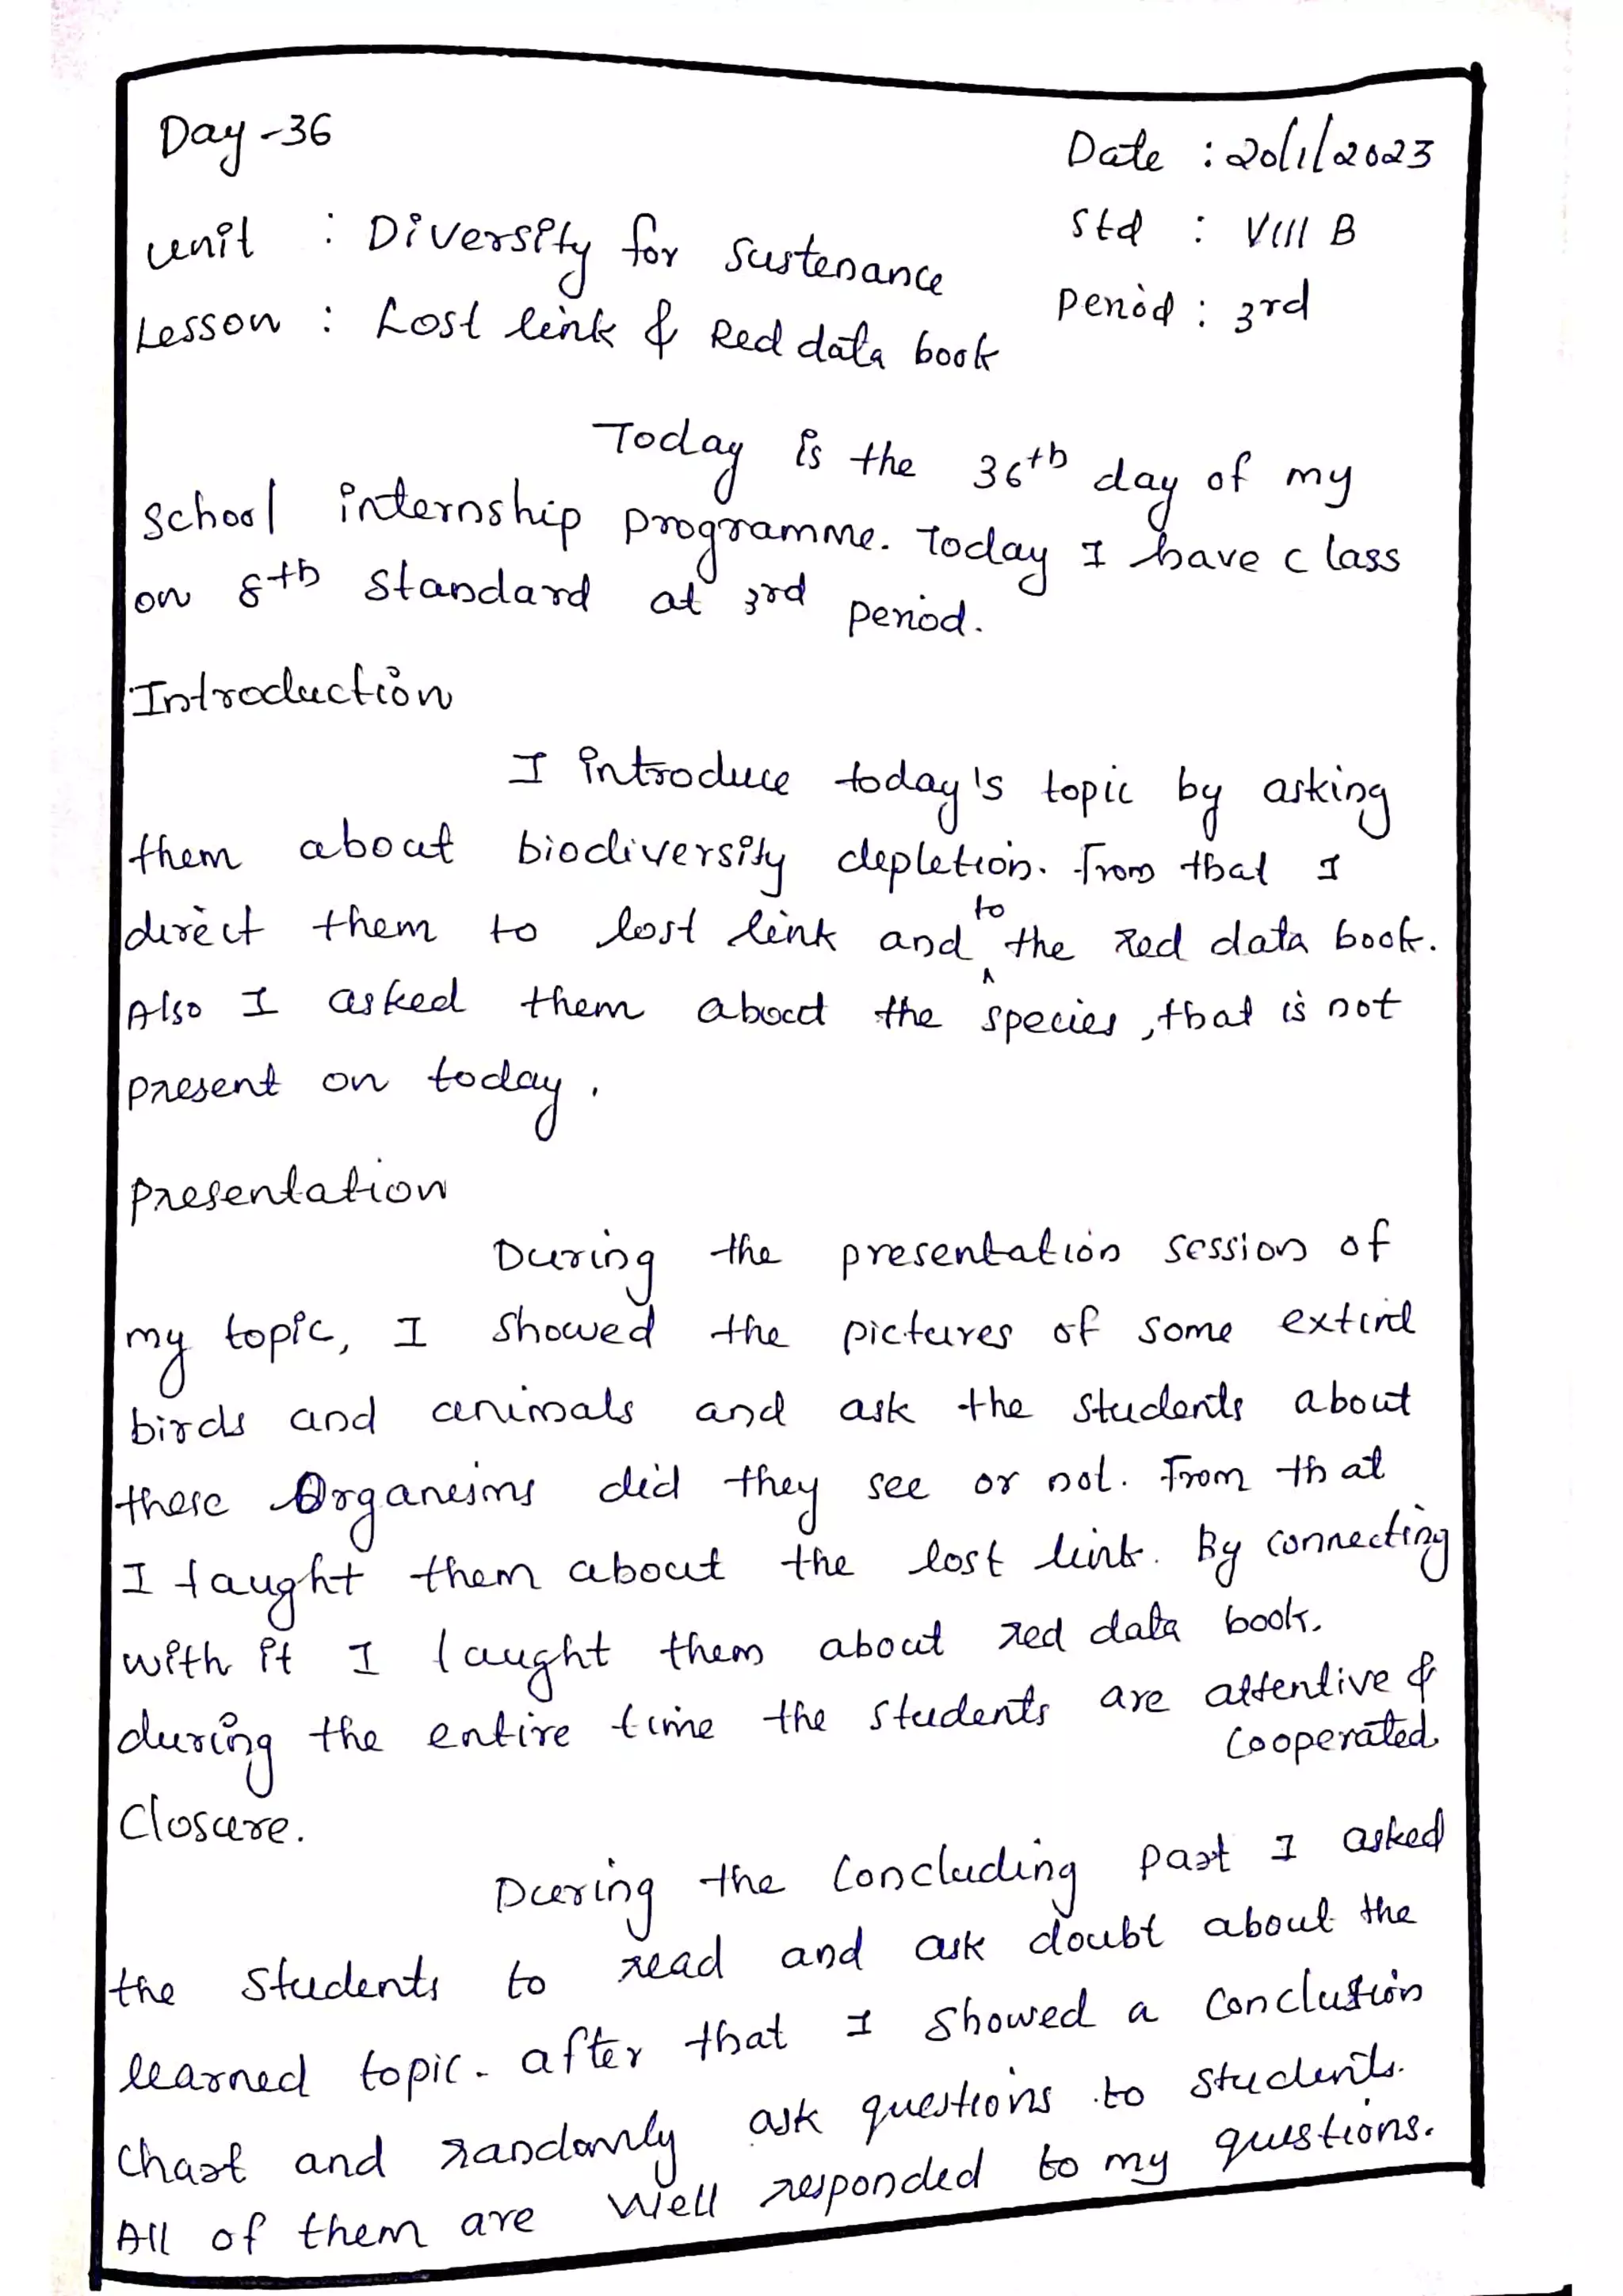 Day -36
Date : 20/1/2023
Unit : Diversity for Sustenance
Std : VIII B
Lesson : Lost link & Red data book
Period : 3rd
Today is the 36th day of my
School internship programme. Today I have class
on 8th Standard at 3rd period.
Introduction
I introduce today's topic by asking
them about biodiversity depletion. From that I
direct them to lost link and to the Red data book.
Also I asked them about the species, that is not
present on today.
Presentation
During the presentation session of
my topic, I showed the pictures of some extinct
birds and animals and ask the students about
these Organisms did they see or not. From that
I taught them about the lost link. By connecting
with it I taught them about red data book.
during the entire time the students are attentive &
Cooperated.
Closure.
During the Concluding part I asked
the Students to read and ask doubt about the
learned topic. after that I showed a Conclusion
Chart and randomly ask questions to students.
All of them are well responded to my questions.